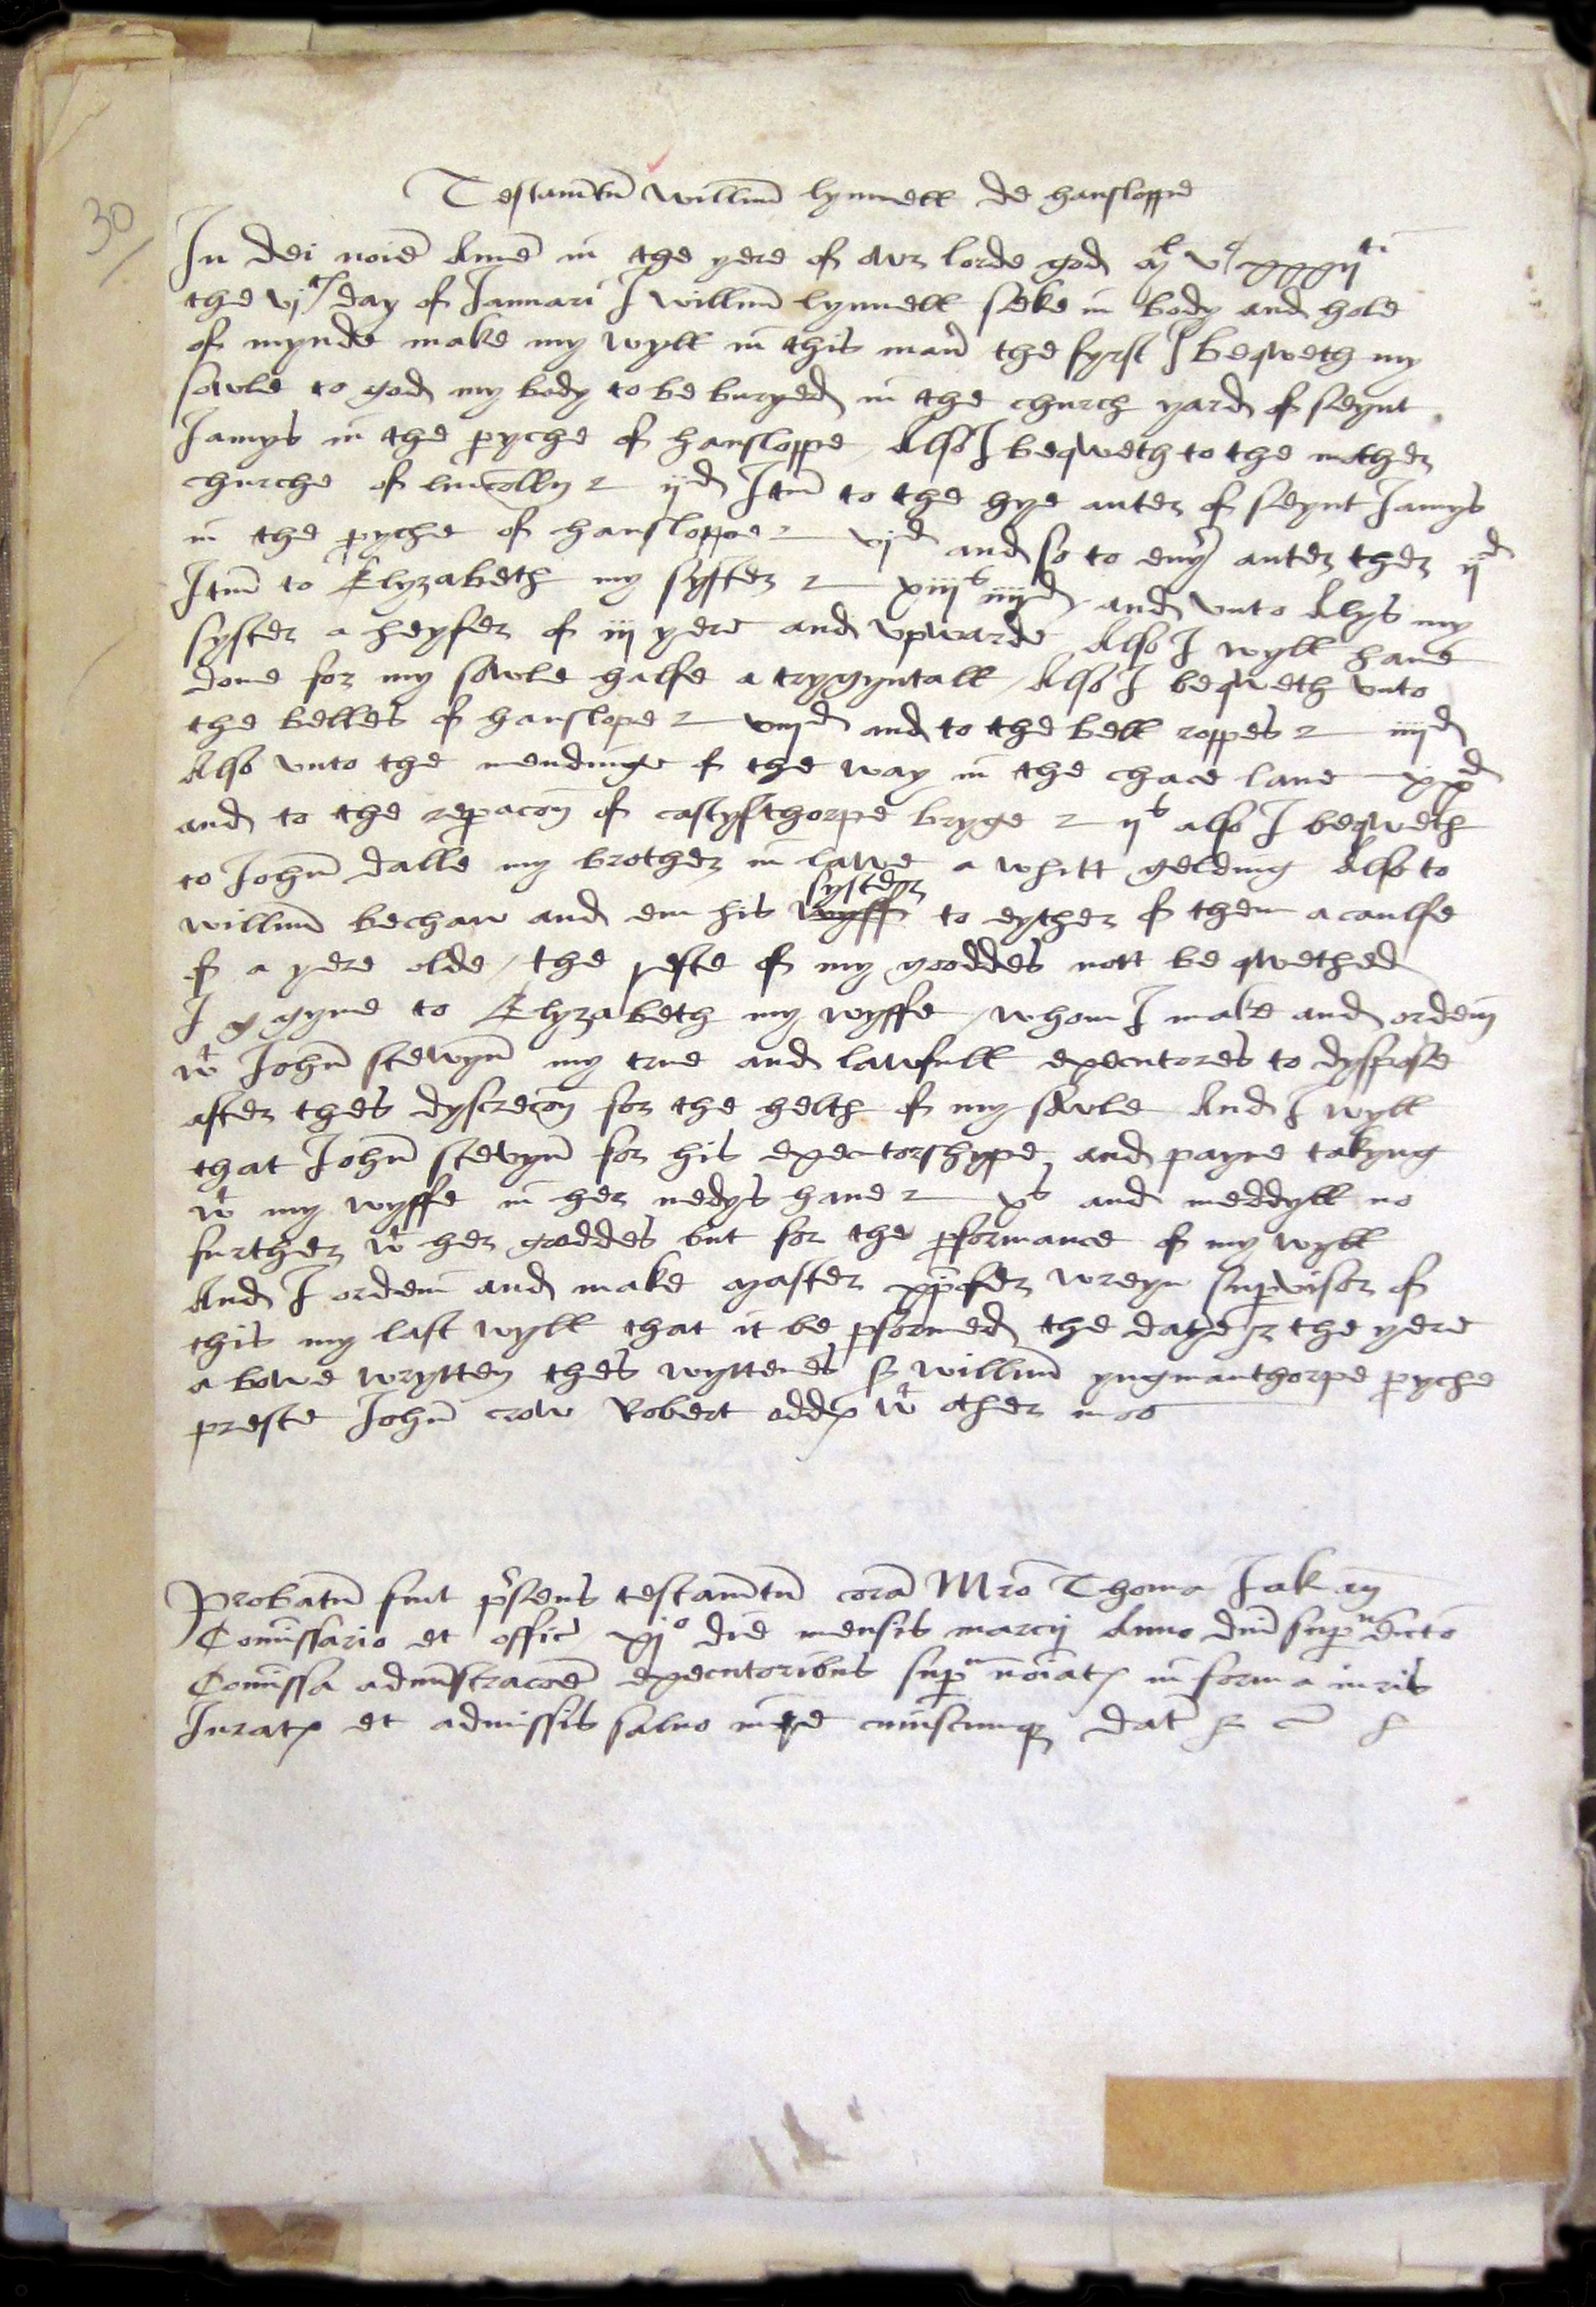 30
Testamtu Willmi lynnell de hansloppe
In dei noie Ame in the yere of owr lorde god Ml vc xxxijti
the vjth day of Januari I Willm lynnell seke in body and hole
of mynde make my wyll in this mañ the fyrst I beqweth my
sowle to god my body to be buryed in the church yard of seynt
Jamys in the pyche of hansloppe / Also I beqweth to the mother
churche of lincolln ijd Itm to the hye auter of seynt Jamys
in the pyche of hansloppe vjd and so to euy auter ther ijd
Itm to Elyzabeth my syster xiijs iiijd and vnto Alys my
syster a heyfer of iij yere and vpwarde Also I wyll haue
done for my sowle halfe a trygyntall / Also I beqweth vnto
the belles of hanslope viijd and to the bell roppes iiijd
Also vnto the mendinge of the way in the chace lane xxd
and to the repacon of castylthorpe bryge ijs also I beqweth
to John dalle my brother in lawe a whitt gelding Also to
willm bechaw and em his wyff syster to eyther of them a caulfe
of a yere olde / the reste of my gooddes nott be qwethed
I g gyue to Elyzabeth my wyffe / whom I make and orden
wt John stewyn my true and lawfull executores to dyspose
after thes dyscrecon for the helth of my sowle And I wyll
that John stevyn for his executorshype and payne takyng
wt my wyffe in her nedys haue xs and meddyll no
further wt her gooddes but for the pformance of my wyll
And I ordeni and make Master xpofer wreyn supvisor of
this my last wyll that it be pformed the daye & the yere
a bowe wrytten thes wyttenes S willm yngmanthorpe pyche
preste John crow Robert odd wt other moo
Probatu fuit psens testamtu cora Mro Thoma Jakman
Comissario et offic xijo die mensis marcij Anno dni supadicto
Comissa administracoe executoribus supa noiat in forma iuris
Jurat et admissis saluo iure cuiuscunq dat